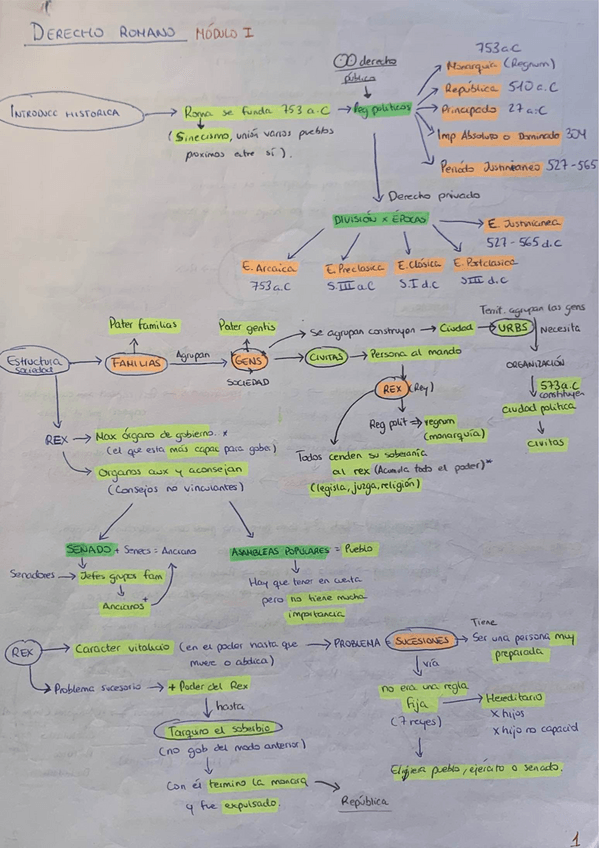 DERECHO ROMANO MÓDULO I
derecho
público
753 a.C
Monarquía (Regnum)
República 510 a.C
Principado 27 a.C
Imp Absoluto o Dominado 304
Periódo Justinianeo 527-565
INTRODUCC HISTORICA
Roma se funda 753 a.C
Reg políticos
(Sinecismo, unión varios pueblos
proximos entre sí).
Derecho privado
DIVISIÓN x ÉPOCAS
E. Justinianea
527-565 d.C
E. Arcaica
753 a.C
E. Preclasica
S.III a.C
E. Clásica
S.I d.C
E. Postclasica
S.III d.C
Pater familias
Pater gentis
Se agrupan construyen
Ciudad
Territ. agrupan las gens
URBS
Necesita
Estructura
sociedad
FAMILIAS
Agrupan
GENS
SOCIEDAD
CIVITAS
Persona al mando
ORGANIZACIÓN
REX (Rey)
573 a.C
constituyen
ciudad política
CIVITAS
Reg polit
regnum
(monarquía)
REX
Max órgano de gobierno. *
(el que esta más capac para gober)
Organos aux y aconsejan
(Consejos no vinculantes)
Todos cenden su soberania
al rex (Acumula todo el poder)*
(legisla, juzga, religión)
SENADO + Senecs = Anciano
Senadores
Jefes grupos fam
+
Ancianos
ASAMBLEAS POPULARES = Pueblo
Hay que tener en cuenta
pero no tiene mucha
importancia
REX
Caracter vitalicio (en el poder hasta que
muere o abdica)
PROBLEMA = SUCESIONES
Tiene
Ser una persona muy
preparada
Problema sucesorio
+ Poder del Rex
hasta
Tarquino el soberbio
(no gob del modo anterior)
Con él termino la monarq
y fue expulsado.
República
vía
no era una regla
fija
(7 reyes)
Hereditario
x hijos
x hijo no capacid
Eligiera pueblo, ejército o senado.
1